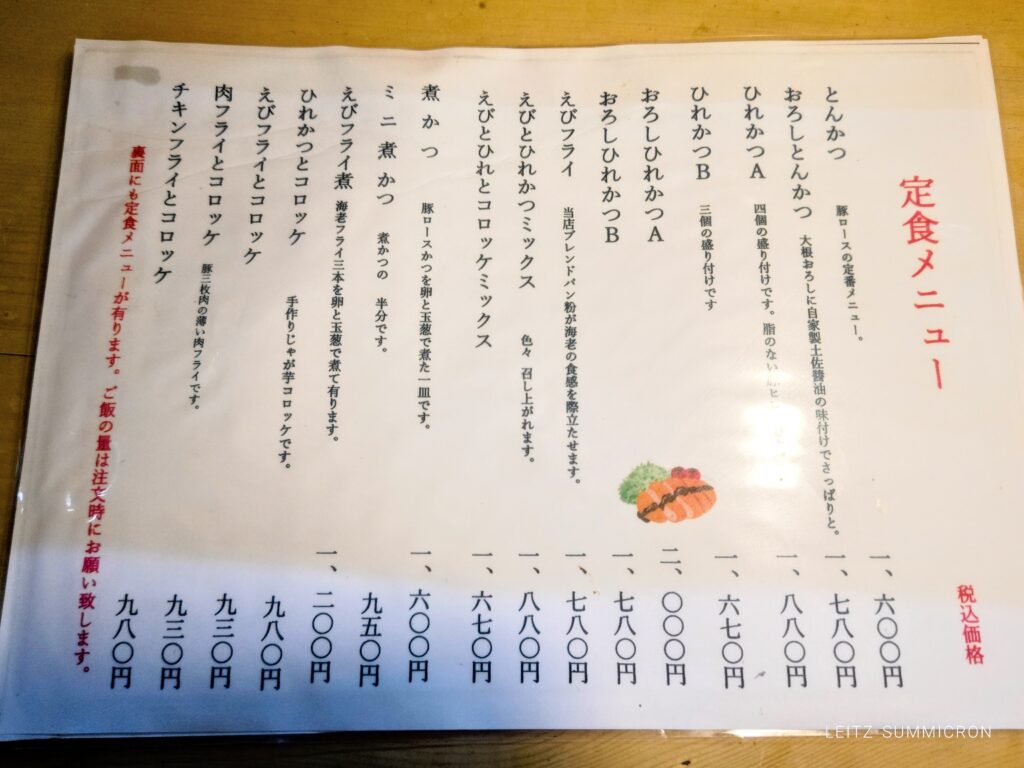 定食メニュー
税込価格
とんかつ 豚ロースの定番メニュー。 一、六〇〇円
おろしとんかつ 大根おろしに自家製土佐醬油の味付けでさっぱりと。 一、七八〇円
ひれかつA 四個の盛り付けです。脂のない 一、八八〇円
ひれかつB 三個の盛り付けです 一、六七〇円
おろしひれかつA 二、〇〇〇円
おろしひれかつB 一、七八〇円
えびフライ 当店ブレンドパン粉が海老の食感を際立たせます。 一、七八〇円
えびとひれかつミックス 色々 召し上がれます。 一、八八〇円
えびとひれとコロッケミックス 一、六七〇円
煮かつ 豚ロースかつを卵と玉葱で煮た一皿です。 一、六〇〇円
ミニ煮かつ 煮かつの 半分です。 九五〇円
えびフライ煮 海老フライ三本を卵と玉葱で煮て有ります。 一、二〇〇円
ひれかつとコロッケ 手作りじゃが芋コロッケです。 九八〇円
えびフライとコロッケ 九三〇円
肉フライとコロッケ 豚三枚肉の薄い肉フライです。 九三〇円
チキンフライとコロッケ 九八〇円
裏面にも定食メニューが有ります。ご飯の量は注文時にお願い致します。
LEITZ SUMMICRON